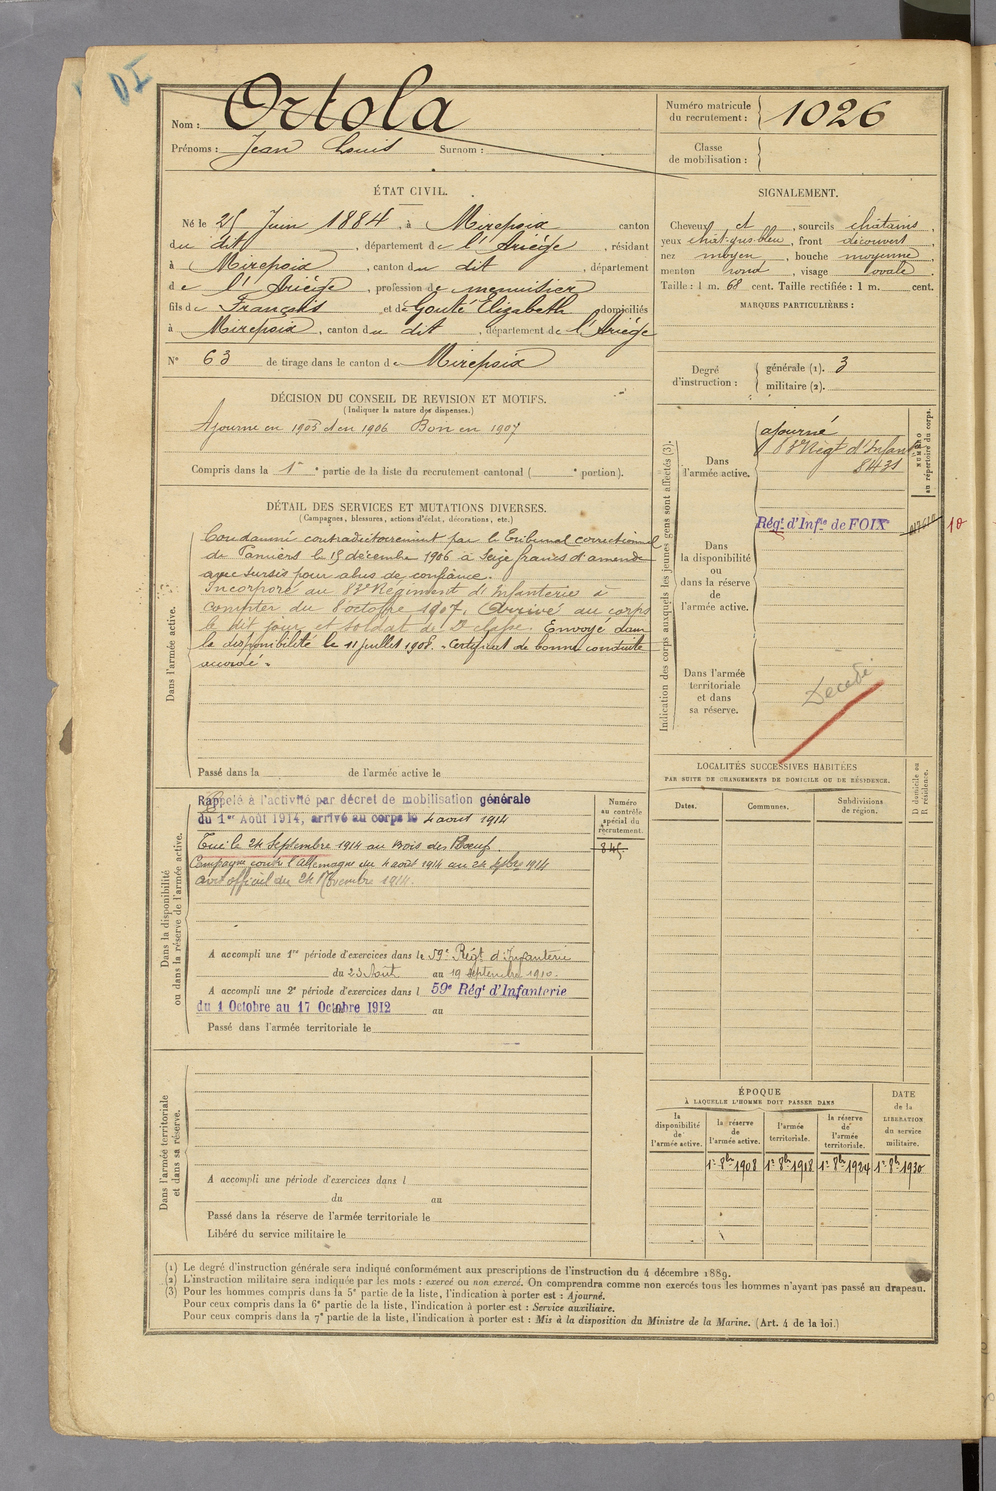 OI
Nom : Ortola
Prénoms : Jean Louis Surnom :
Numéro matricule du recrutement : 1026
Classe de mobilisation :
ÉTAT CIVIL.
Né le 25 Juin 1884, à Mirepoix canton
du dit, département de l'Ariège, résidant
à Mirepoix, canton du dit, département
de l'Ariège, profession de menuisier
fils de François et de Gouté Elizabeth domiciliés
à Mirepoix, canton du dit, département de l'Ariège
N° 63 de tirage dans le canton de Mirepoix
SIGNALEMENT.
Cheveux et, sourcils châtains,
yeux chât-gris-bleu, front découvert,
nez moyen, bouche moyenne,
menton rond, visage ovale.
Taille : 1 m. 68 cent. Taille rectifiée : 1 m. cent.
MARQUES PARTICULIÈRES :
Degré d'instruction :
générale (1). 3
militaire (2).
DÉCISION DU CONSEIL DE REVISION ET MOTIFS.
(Indiquer la nature des dispenses.)
Ajourné en 1905 et en 1906 Bon en 1907
Compris dans la 1re partie de la liste du recrutement cantonal ( e portion).
DÉTAIL DES SERVICES ET MUTATIONS DIVERSES.
(Campagnes, blessures, actions d'éclat, décorations, etc.)
Dans l'armée active.
Condamné contradictoirement par le tribunal correctionnel
de Pamiers le 15 décembre 1906 à Seize francs d'amende
avec sursis pour abus de confiance.
Incorporé au 83e Régiment d'Infanterie à
compter du 8 octobre 1907. Arrivé au corps
le dit jour et soldat de 2e classe. Envoyé dans
la disponibilité le 11 juillet 1908. Certificat de bonne conduite
accordé.
Passé dans la de l'armée active le
Indication des corps auxquels les jeunes gens sont affectés (3).
NUMÉRO au répertoire du corps.
Dans l'armée active.
ajourné
83e Régt d'Infanterie
8431
Dans la disponibilité ou dans la réserve de l'armée active.
Régt d'Infie de FOIX
10
Dans l'armée territoriale et dans sa réserve.
Décédé
LOCALITÉS SUCCESSIVES HABITÉES
PAR SUITE DE CHANGEMENTS DE DOMICILE OU DE RÉSIDENCE.
Dates. Communes. Subdivisions de région. D domicile ou R résidence.
Dans la disponibilité ou dans la réserve de l'armée active.
Numéro au contrôle spécial du recrutement.
845
Rappelé à l'activité par décret de mobilisation générale
du 1er Août 1914, arrivé au corps le 4 août 1914
Tué le 24 Septembre 1914 au Bois des Bœufs.
Campagne contre l'Allemagne du 4 août 1914 au 24 7bre 1914
avis officiel du 24 Novembre 1914.
A accompli 1re période d'exercices dans le 59e Régt d'Infanterie
du 23 Août au 19 Septembre 1910.
A accompli une 2e période d'exercices dans l 59e Régt d'Infanterie
du 1 Octobre au 17 Octobre 1912 au
Passé dans l'armée territoriale le
Dans l'armée territoriale et dans sa réserve.
A accompli une période d'exercices dans l
du au
Passé dans la réserve de l'armée territoriale le
Libéré du service militaire le
ÉPOQUE
À LAQUELLE L'HOMME DOIT PASSER DANS
la disponibilité de l'armée active. la réserve de l'armée active. l'armée territoriale. la réserve de l'armée territoriale.
DATE de la LIBÉRATION du service militaire.
1er 8bre 1908 1er 8bre 1918 1er 8bre 1924 1er 8bre 1930
(1) Le degré d'instruction générale sera indiqué conformément aux prescriptions de l'instruction du 4 décembre 1889.
(2) L'instruction militaire sera indiquée par les mots : exercé ou non exercé. On comprendra comme non exercés tous les hommes n'ayant pas passé au drapeau.
(3) Pour les hommes compris dans la 5e partie de la liste, l'indication à porter est : Ajourné.
Pour ceux compris dans la 6e partie de la liste, l'indication à porter est : Service auxiliaire.
Pour ceux compris dans la 7e partie de la liste, l'indication à porter est : Mis à la disposition du Ministre de la Marine. (Art. 4 de la loi.)